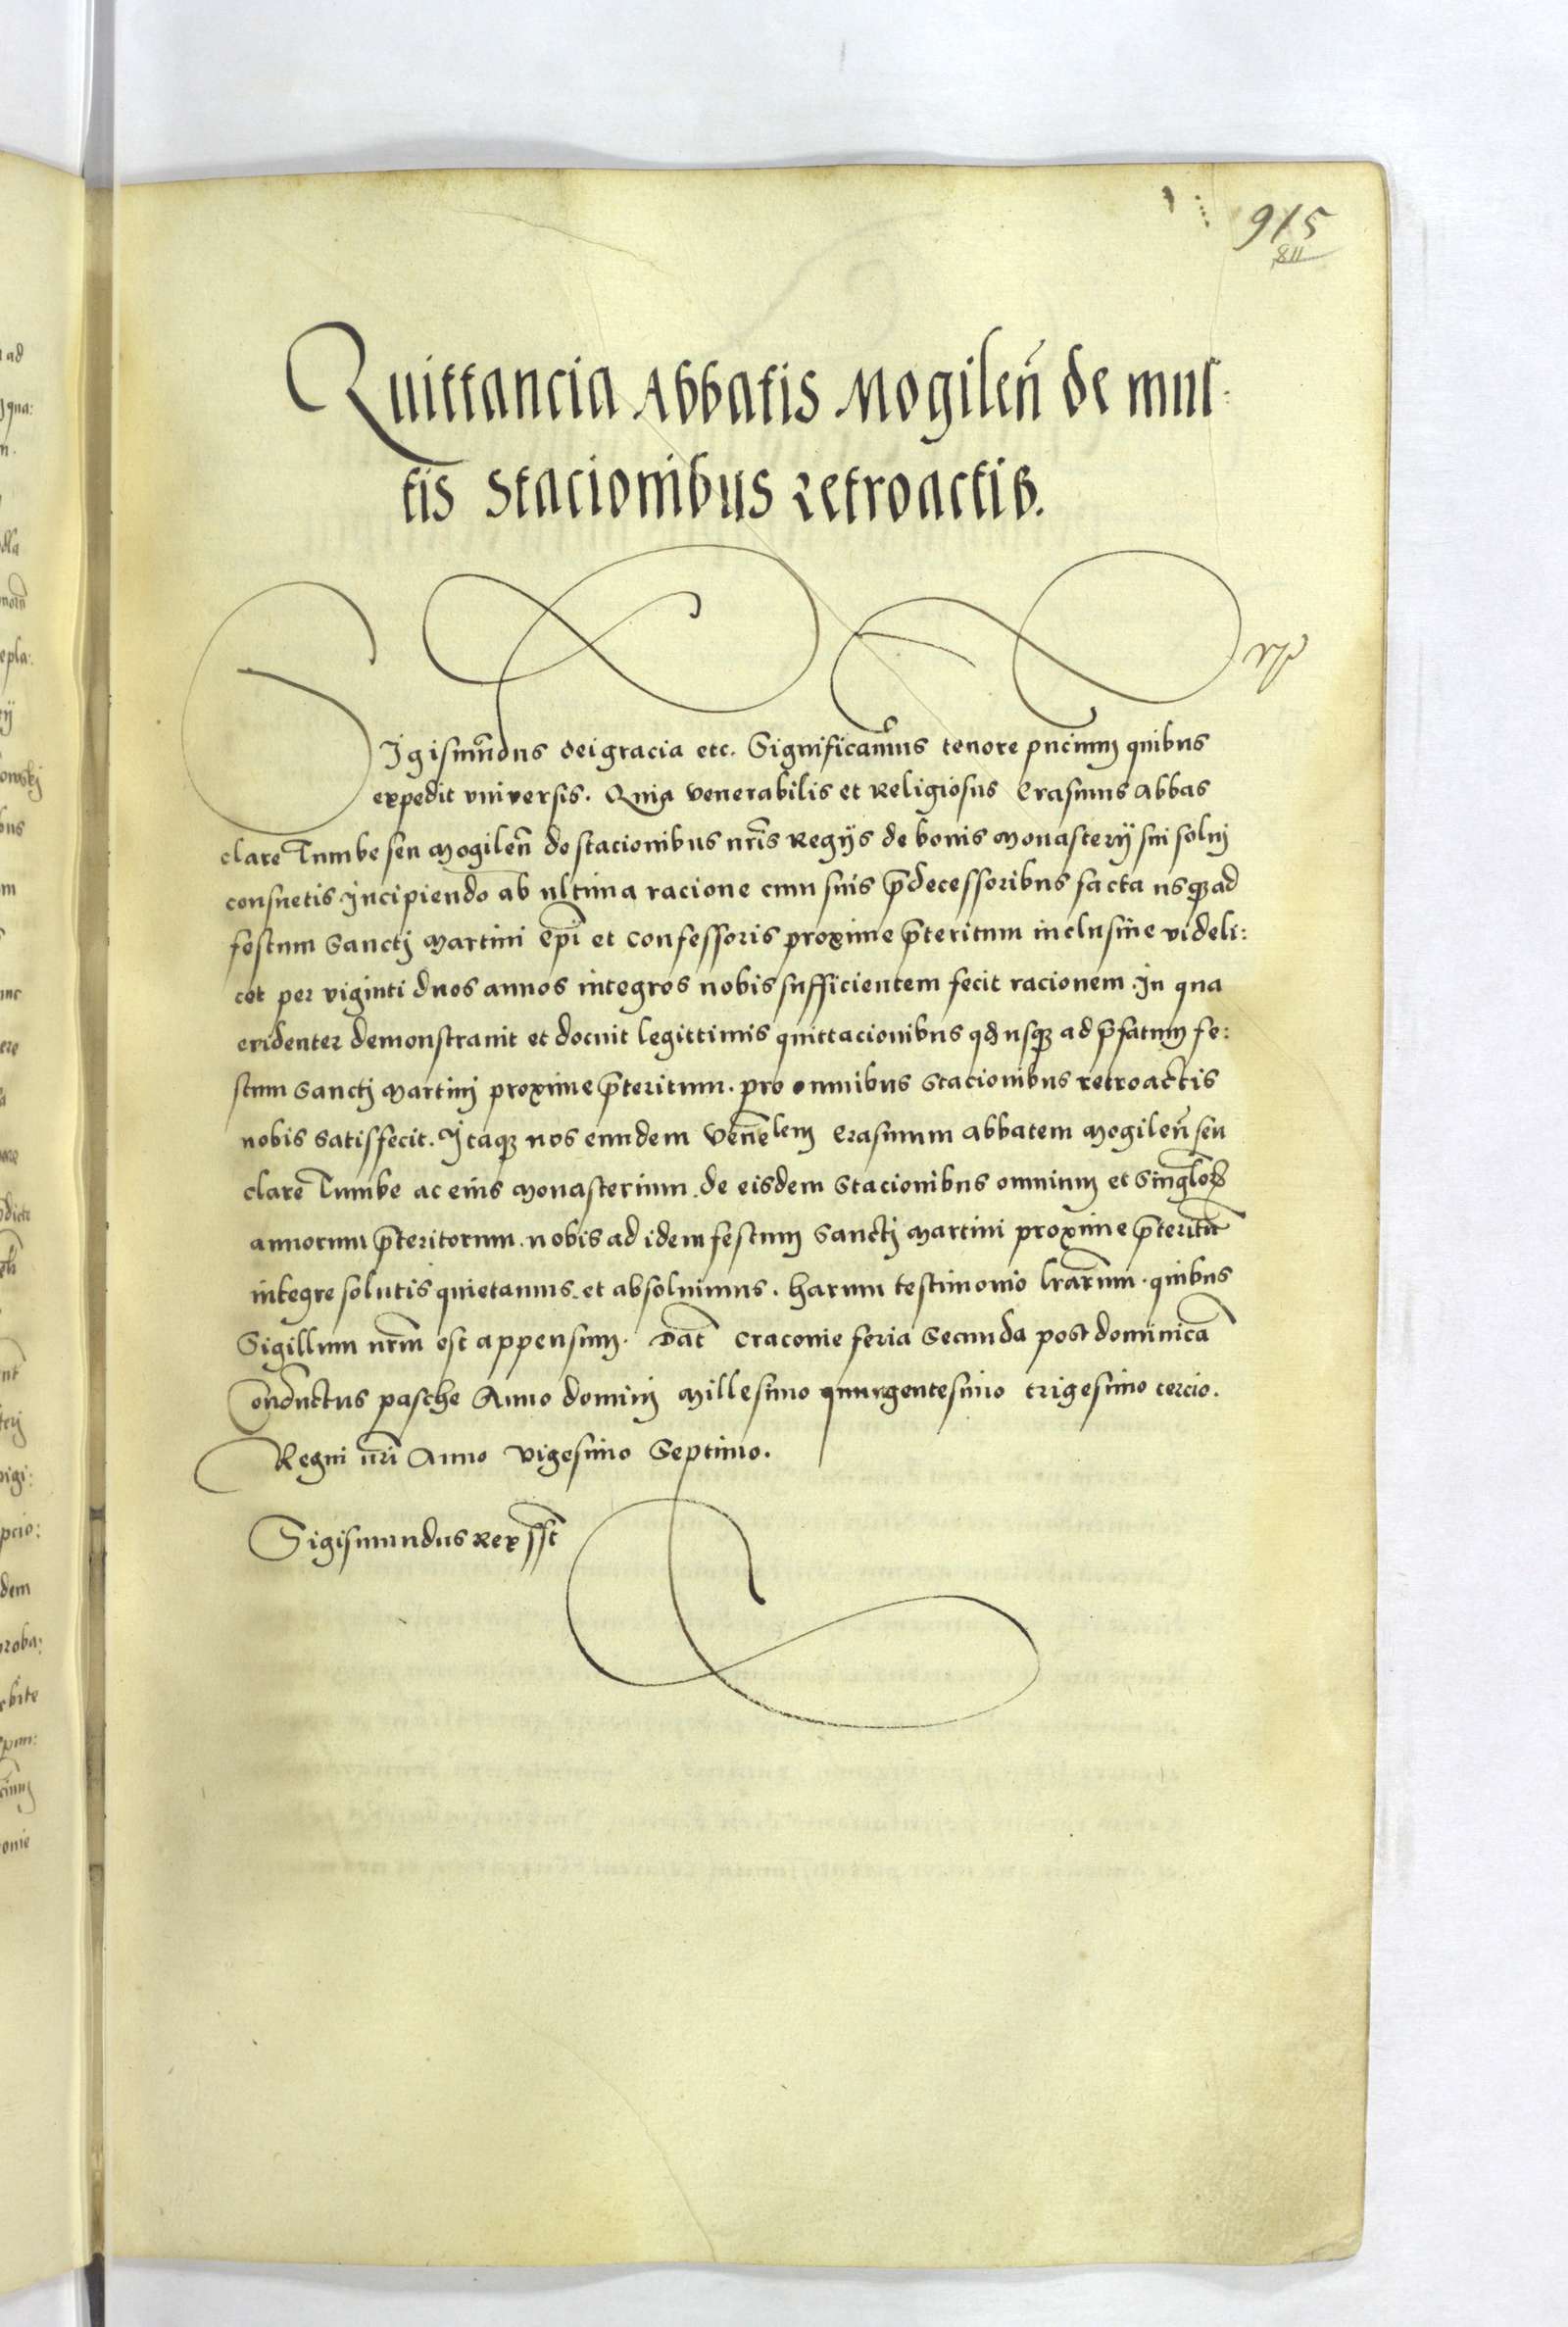 915
811
Quittancia Abbatis Mogilen̄ de mul:
tis Stacionibus retroactis.
Sigismūndus dei gracia etc. Significamus tenore pn̄cium quibus
expedit vniversis. Quia venerabilis et Religiosus Erasmus Abbas
clare Tumbe seu Mogilen̄ de stacionibus nr̄is Regijs de bonis Monasterij sui solui
consuetis. Incipiendo ab ultima racione cum suis p̄decessoribus facta usqꝫ ad
festum Sanctj Martini ep̄i et confessoris proxime p̄teritum inclusiue videli:
cet per viginti duos annos integros nobis sufficientem fecit racionem. In qua
euidenter demonstrauit et docuit legittimis quittacionibus qđ usqꝫ ad p̄fatum fe:
stum Sanctj Martinj proxime p̄teritum. pro omnibus Stacionibus retroactis
nobis satisfecit. Itaqꝫ nos eundem Ven̄elem Erasmum Abbatem Mogilen̄ seu
clare Tumbe ac eius Monasterium. de eisdem Stacionibus omnium et Singloꝝ
annorum p̄teritorum. nobis ad idem festum Sanctj Martini proxime p̄teritū
integre solutis quietamus. et absoluimus. harum testimonio lr̄arum. quibus
Sigillum nr̄m est appensum. Dat̄ Cracouie feria Secunda post dominicā
Conductus pasche Anno dominj Millesimo quingentesimo trigesimo tercio.
Regni nr̄i Anno vigesimo Septimo.
Sigismundus Rex sst̄